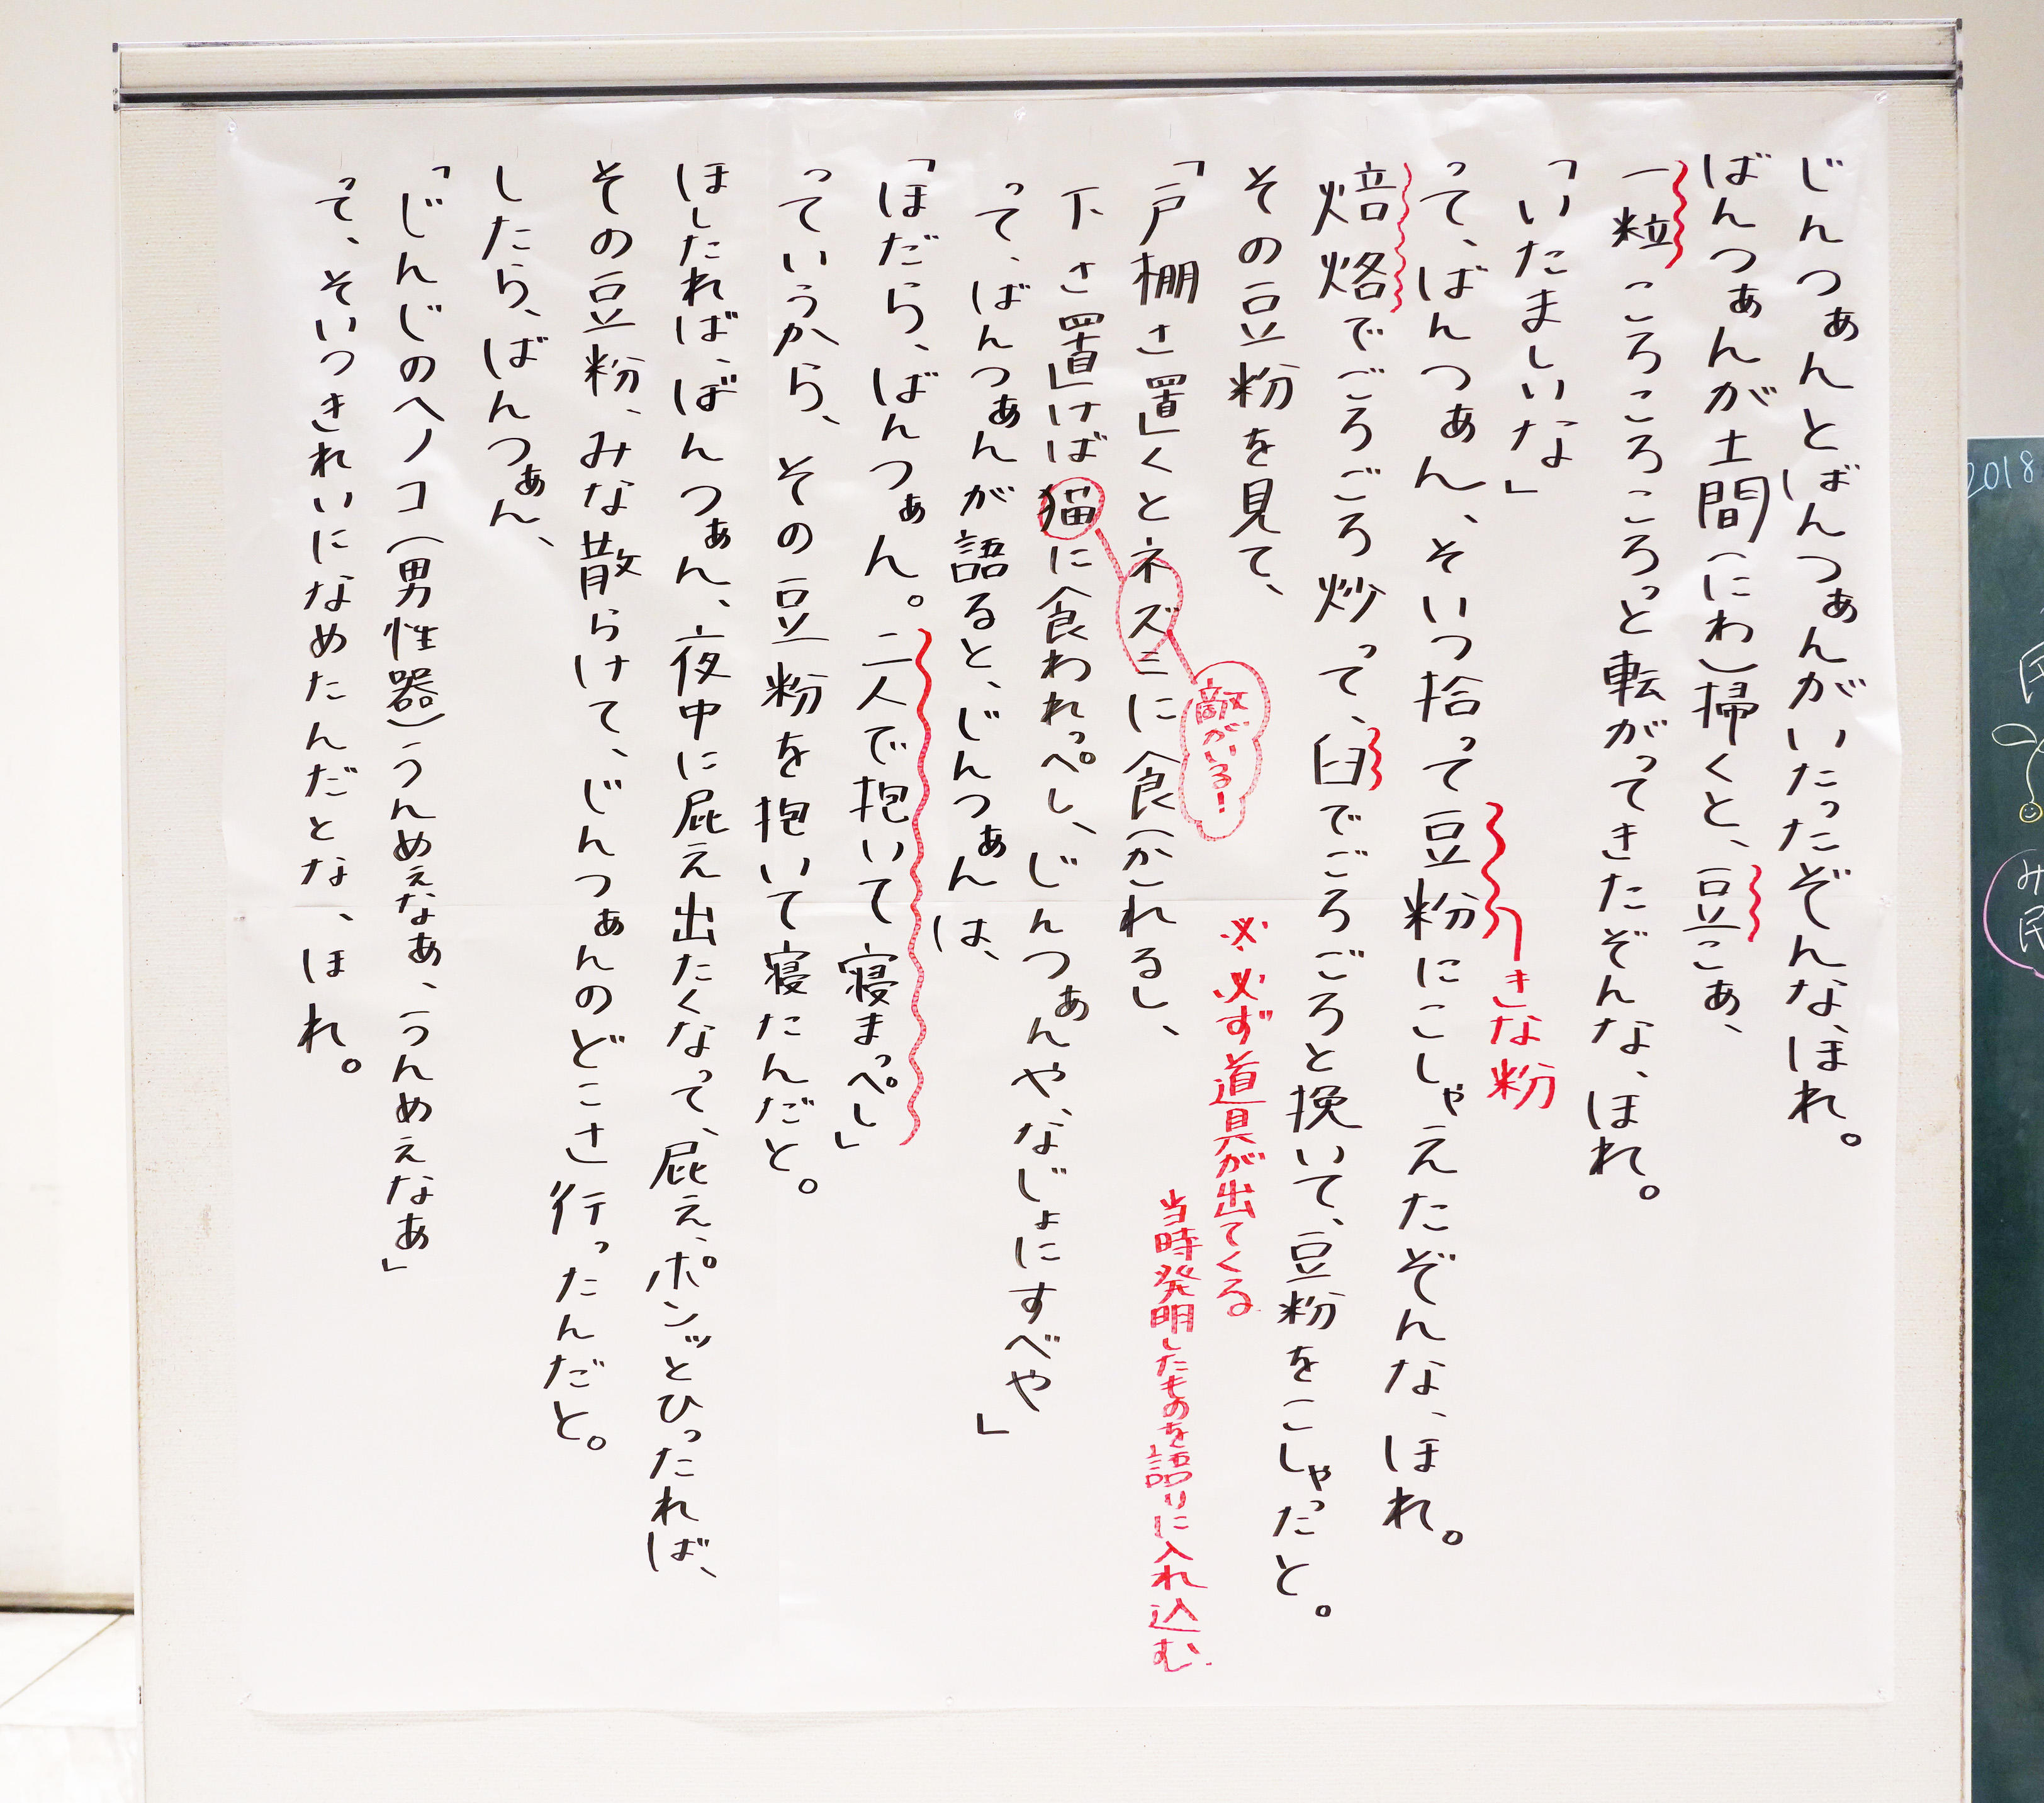 じんつぁんとばんつぁんがいたったぞんな、ほれ。
ばんつぁんが土間(にわ)掃くと、豆こぁ、
一粒ころころころころっと転がってきたぞんな、ほれ。
「いたましいな」
って、ばんつぁん、そいつ拾って豆粉にこしゃえたぞんな、ほれ。
きな粉
焙烙でごろごろ炒って、臼でごろごろと挽いて、豆粉をこしゃだっと。
その豆粉を見て、
※必ず道具が出てくる
当時発明したものを語りに入れ込む
「戸棚さ置くとネズミに食(か)れるし、
敵がいる!
下さ置けば猫に食われっぺし、じんつぁんや、なじょにすべや」
って、ばんつぁんが語ると、じんつぁんは、
「ほだら、ばんつぁん。二人で抱いて寝まっぺし」
っていうから、その豆粉を抱いて寝たんだと。
ほしたれば、ばんつぁん、夜中に屁え出たくなって、屁え、ポンッとひったれば、
その豆粉、みな散らけて、じんつぁんのどこさ行ったんだと。
したら、ばんつぁん、
「じんじのヘノコ(男性器)うんめぇなぁ、うんめぇなぁ」
って、そいつきれいになめたんだとな、ほれ。
2018